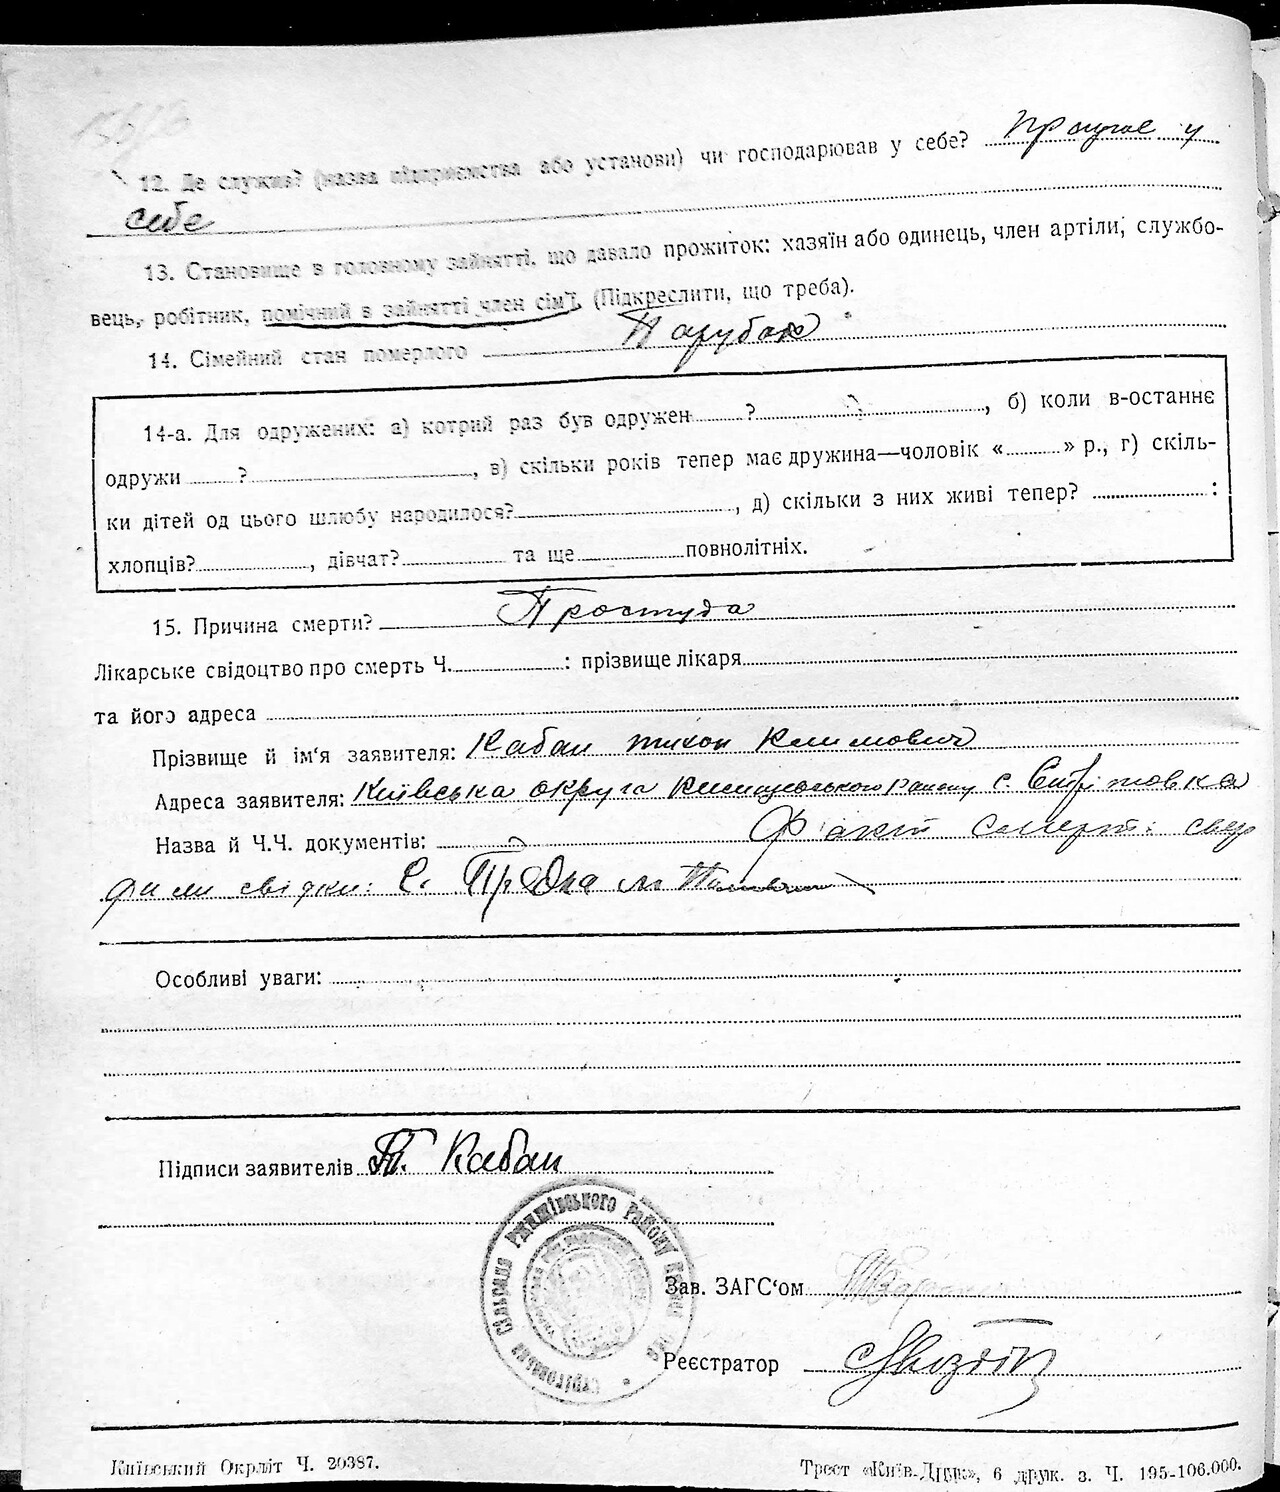 12. Де служив? (назва підприємства або установи) чи господарював у себе? Працює у
себе
13. Становище в головному зайнятті, що давало прожиток: хазяїн або одинець, член артіли, службо-
вець, робітник, помічний в зайнятті член сім'ї. (Підкреслити, що треба).
14. Сімейний стан померлого Парубок
14-а. Для одружених: а) котрий раз був одружен ? , б) коли в-останнє
одружи ? , в) скільки років тепер має дружина—чоловік « » р., г) скіль-
ки дітей од цього шлюбу народилося? , д) скільки з них живі тепер? :
хлопців? , дівчат? та ще повнолітніх.
15. Причина смерти? Простуда
Лікарське свідоцтво про смерть Ч. : прізвище лікаря
та його адреса
Прізвище й ім'я заявителя: Кабан тихон Климович
Адреса заявителя: Київська округа району с.
Назва й Ч.Ч. документів: Факт смерті свер
дили свідки: С.
Особливі уваги:
Підписи заявителів Т. Кабан
Ржищівського Району
Зав. ЗАГС'ом
Реєстратор
Київський Окрліт Ч. 20387.
Трест «Київ-Друк», 6 друк. з. Ч. 195-106.000.